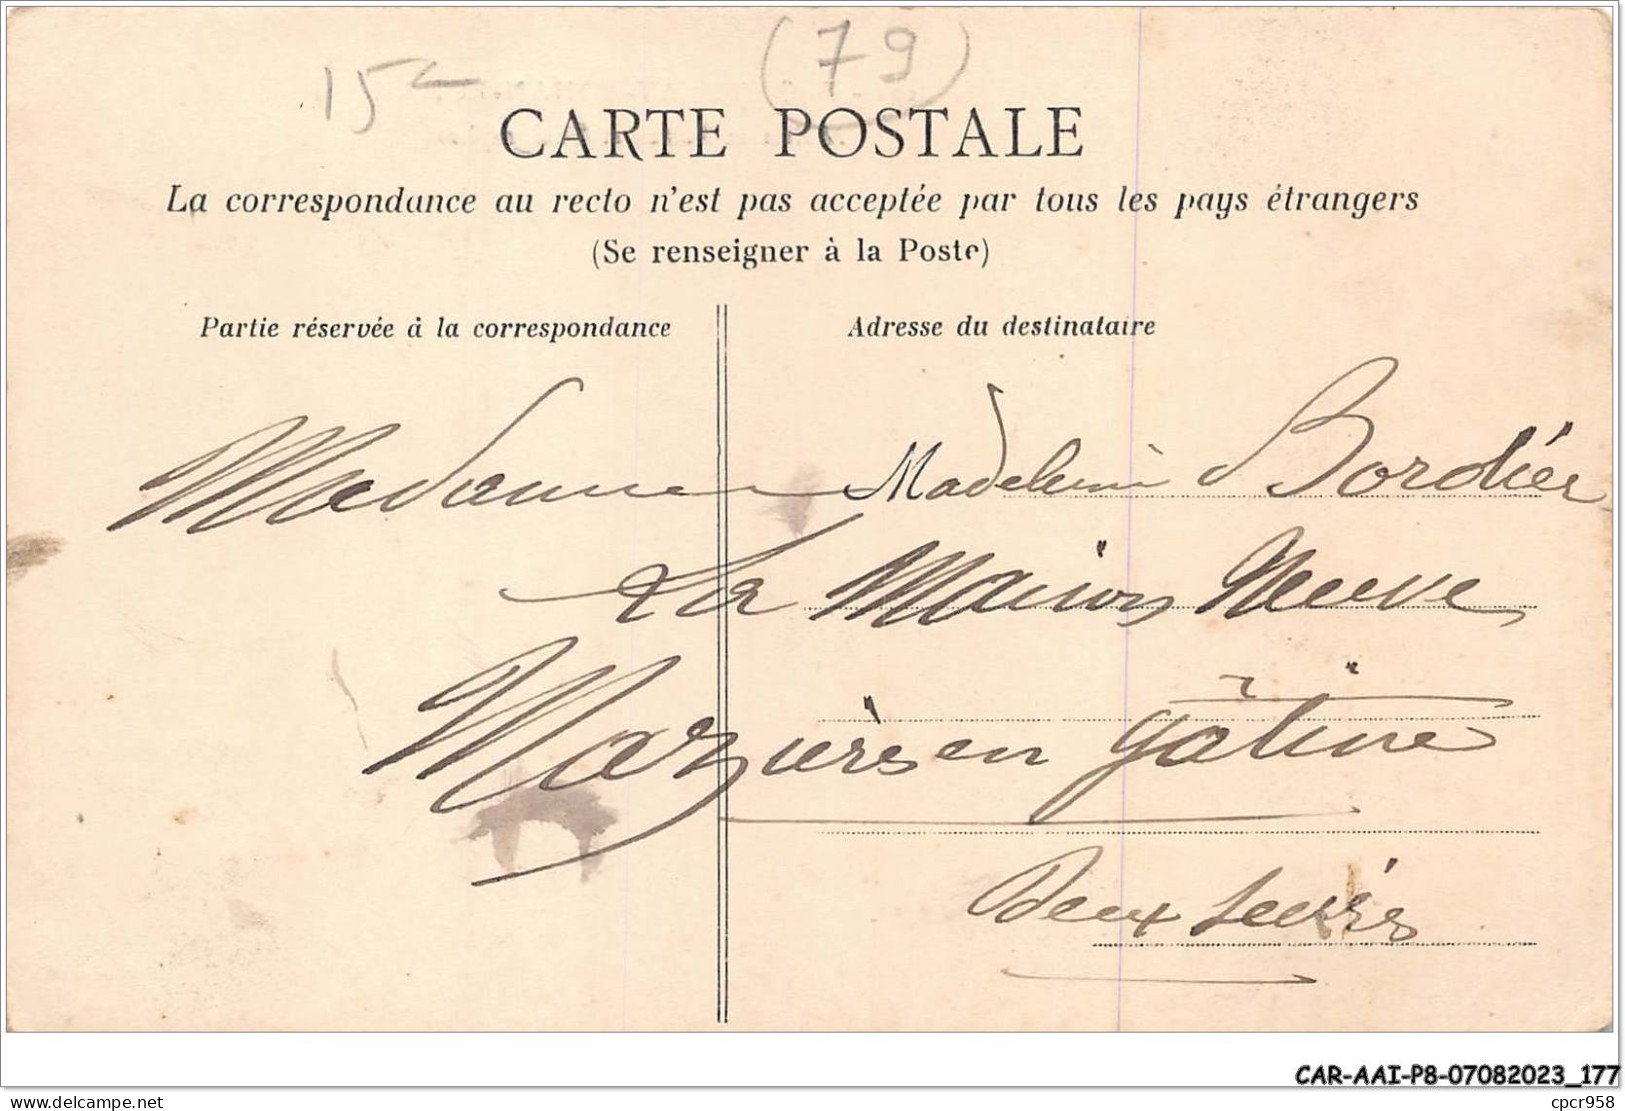 15 (79)
CARTE POSTALE
La correspondance au recto n'est pas acceptée par tous les pays étrangers
(Se renseigner à la Poste)
Partie réservée à la correspondance
Adresse du destinataire
Madame Madeleine Bordier
La Maison Neuve
Mazières en Gâtine
Deux Sèvres
CAR-AAI-P8-07082023_177
delcampe.net
cpcr958